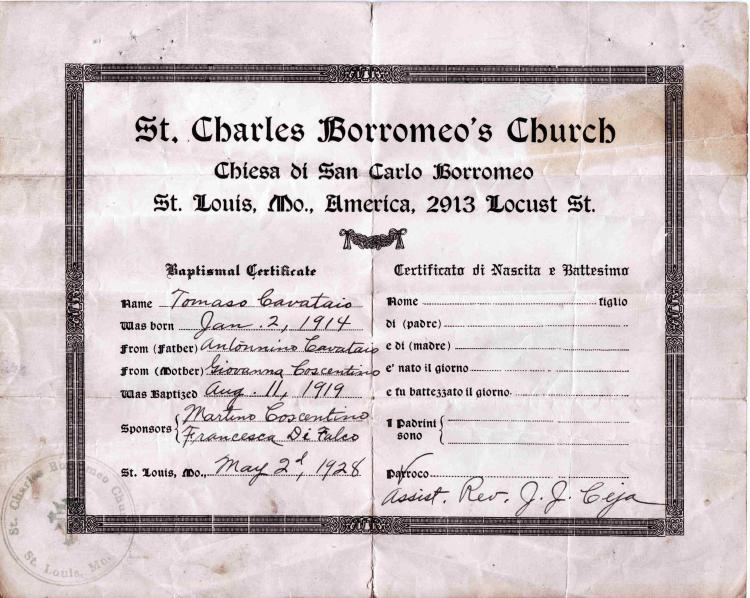 St. Charles Borromeo's Church
Chiesa di San Carlo Borromeo
St. Louis, Mo., America, 2913 Locust St.
Baptismal Certificate
Name Tomaso Cavataio
Was born Jan. 2, 1914
From (Father) Antonnino Cavataio
From (Mother) Giovanna Coscentino
Was Baptized Aug. 11, 1919
Sponsors { Martino Coscentino
Francesca Di Falco
St. Louis, Mo., May 2d, 1928
Certificato di Nascita e Battesimo
Nome figlio
di (padre)
e di (madre)
e' nato il giorno
e fu battezzato il giorno
I Padrini
sono {
Parroco
Assist. Rev. J. J. Ceja
St. Charles Borromeo Church
St. Louis, Mo.